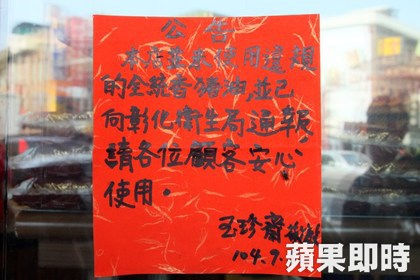 公告
本店並未使用這類
的全統香豬油,並已
向彰化衛生局通報,
請各位顧客安心
使用。
玉珍齋
104.9.
蘋果即時